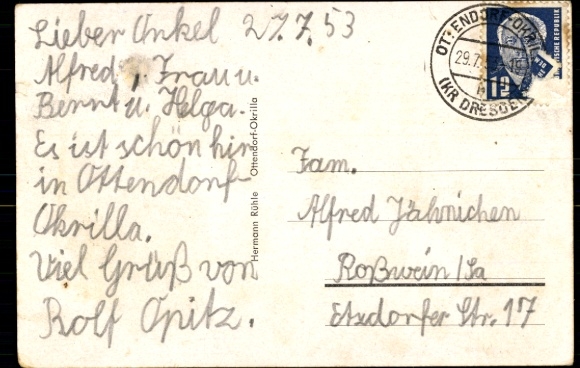 Lieber Onkel 27.7.53
Alfred, Frau u.
Bernt u. Helga.
Es ist schön hir
in Ottendorf-
Okrilla.
Viel Grüß von
Rolf Opitz.
Hermann Rühle Ottendorf-Okrilla
OTTENDORF-OKRILLA
29.7.
(KR DRESDEN)
Fam.
Alfred Jähnichen
Roßwein/Sa
Etzdorfer Str. 17